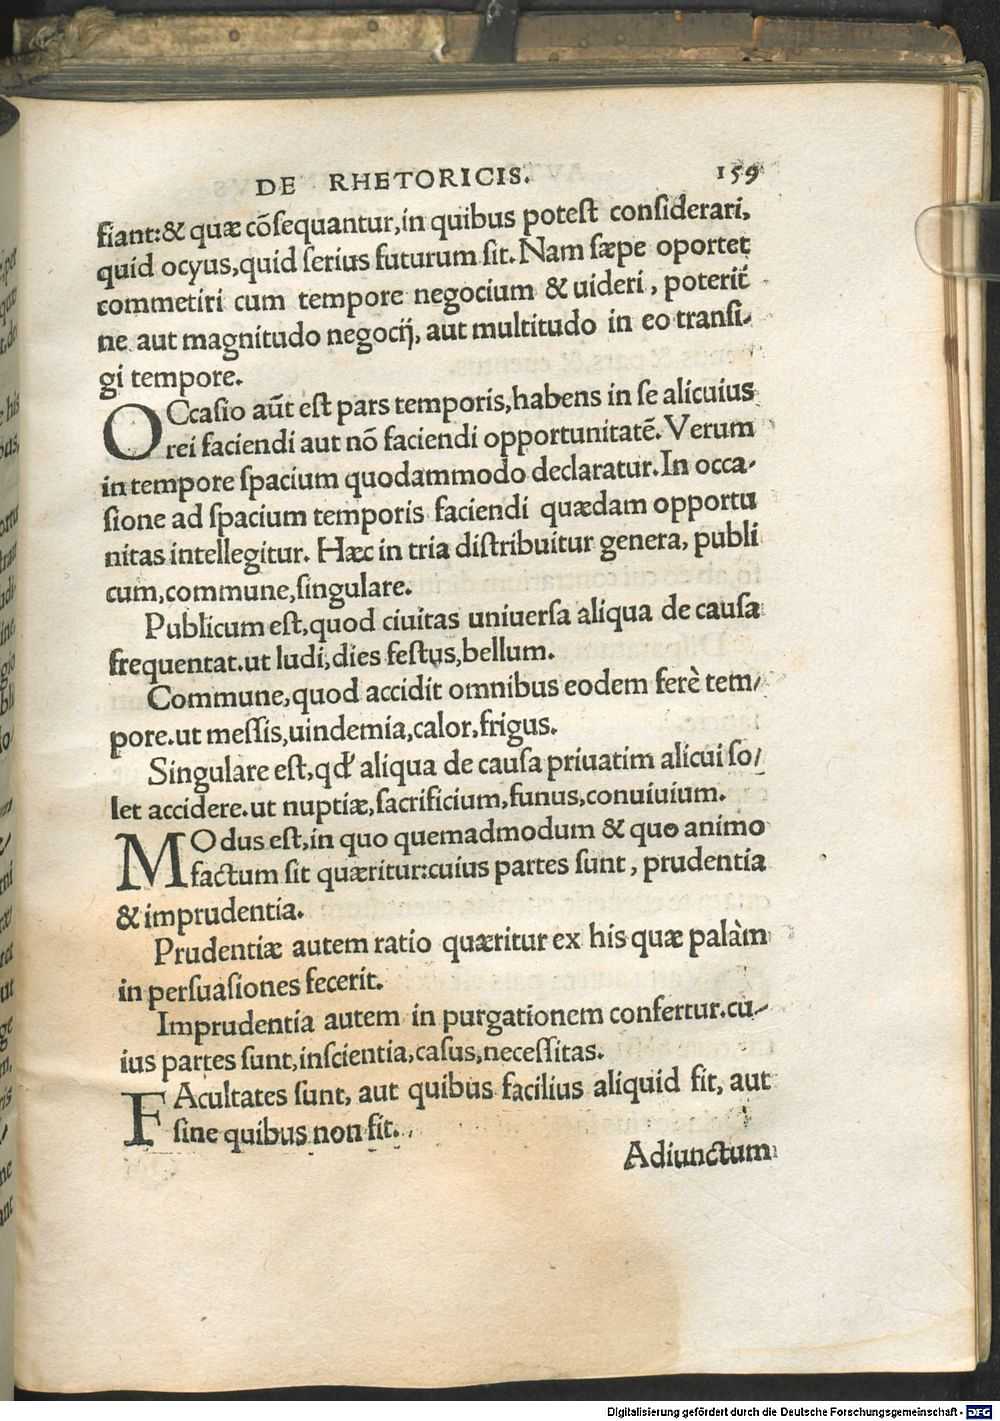 DE RHETORICIS. 159
fiant:& quæ cōſequantur,in quibus poteſt conſiderari,
quid ocyus,quid ſerius futurum ſit. Nam ſæpe oportet
commetiri cum tempore negocium & uideri, poterit́
ne aut magnitudo negocij, aut multitudo in eo tranſi-
gi tempore.
OCcaſio aūt eſt pars temporis,habens in ſe alicuius
rei faciendi aut nō faciendi opportunitatē. Verum
in tempore ſpacium quodammodo declaratur. In occa-
ſione ad ſpacium temporis faciendi quædam opportu
nitas intellegitur. Hæc in tria diſtribuitur genera, publi
cum,commune,ſingulare.
Publicum eſt,quod ciuitas uniuerſa aliqua de cauſa
frequentat.ut ludi,dies feſtus,bellum.
Commune,quod accidit omnibus eodem ferè tem/
pore.ut meſſis,uindemia,calor,frigus.
Singulare eſt,qd' aliqua de cauſa priuatim alicui ſo/
let accidere.ut nuptiæ,ſacrificium,funus,conuiuium.
MOdus eſt,in quo quemadmodum & quo animo
factum ſit quæritur:cuius partes ſunt, prudentia
& imprudentia.
Prudentiæ autem ratio quæritur ex his quæ palàm
in perſuaſiones fecerit.
Imprudentia autem in purgationem confertur.cu-
ius partes ſunt,inſcientia,caſus,neceſſitas.
FAcultates ſunt, aut quibus facilius aliquid fit, aut
ſine quibus non fit.
Adiunctum
Digitalisierung gefördert durch die Deutsche Forschungsgemeinschaft - DFG